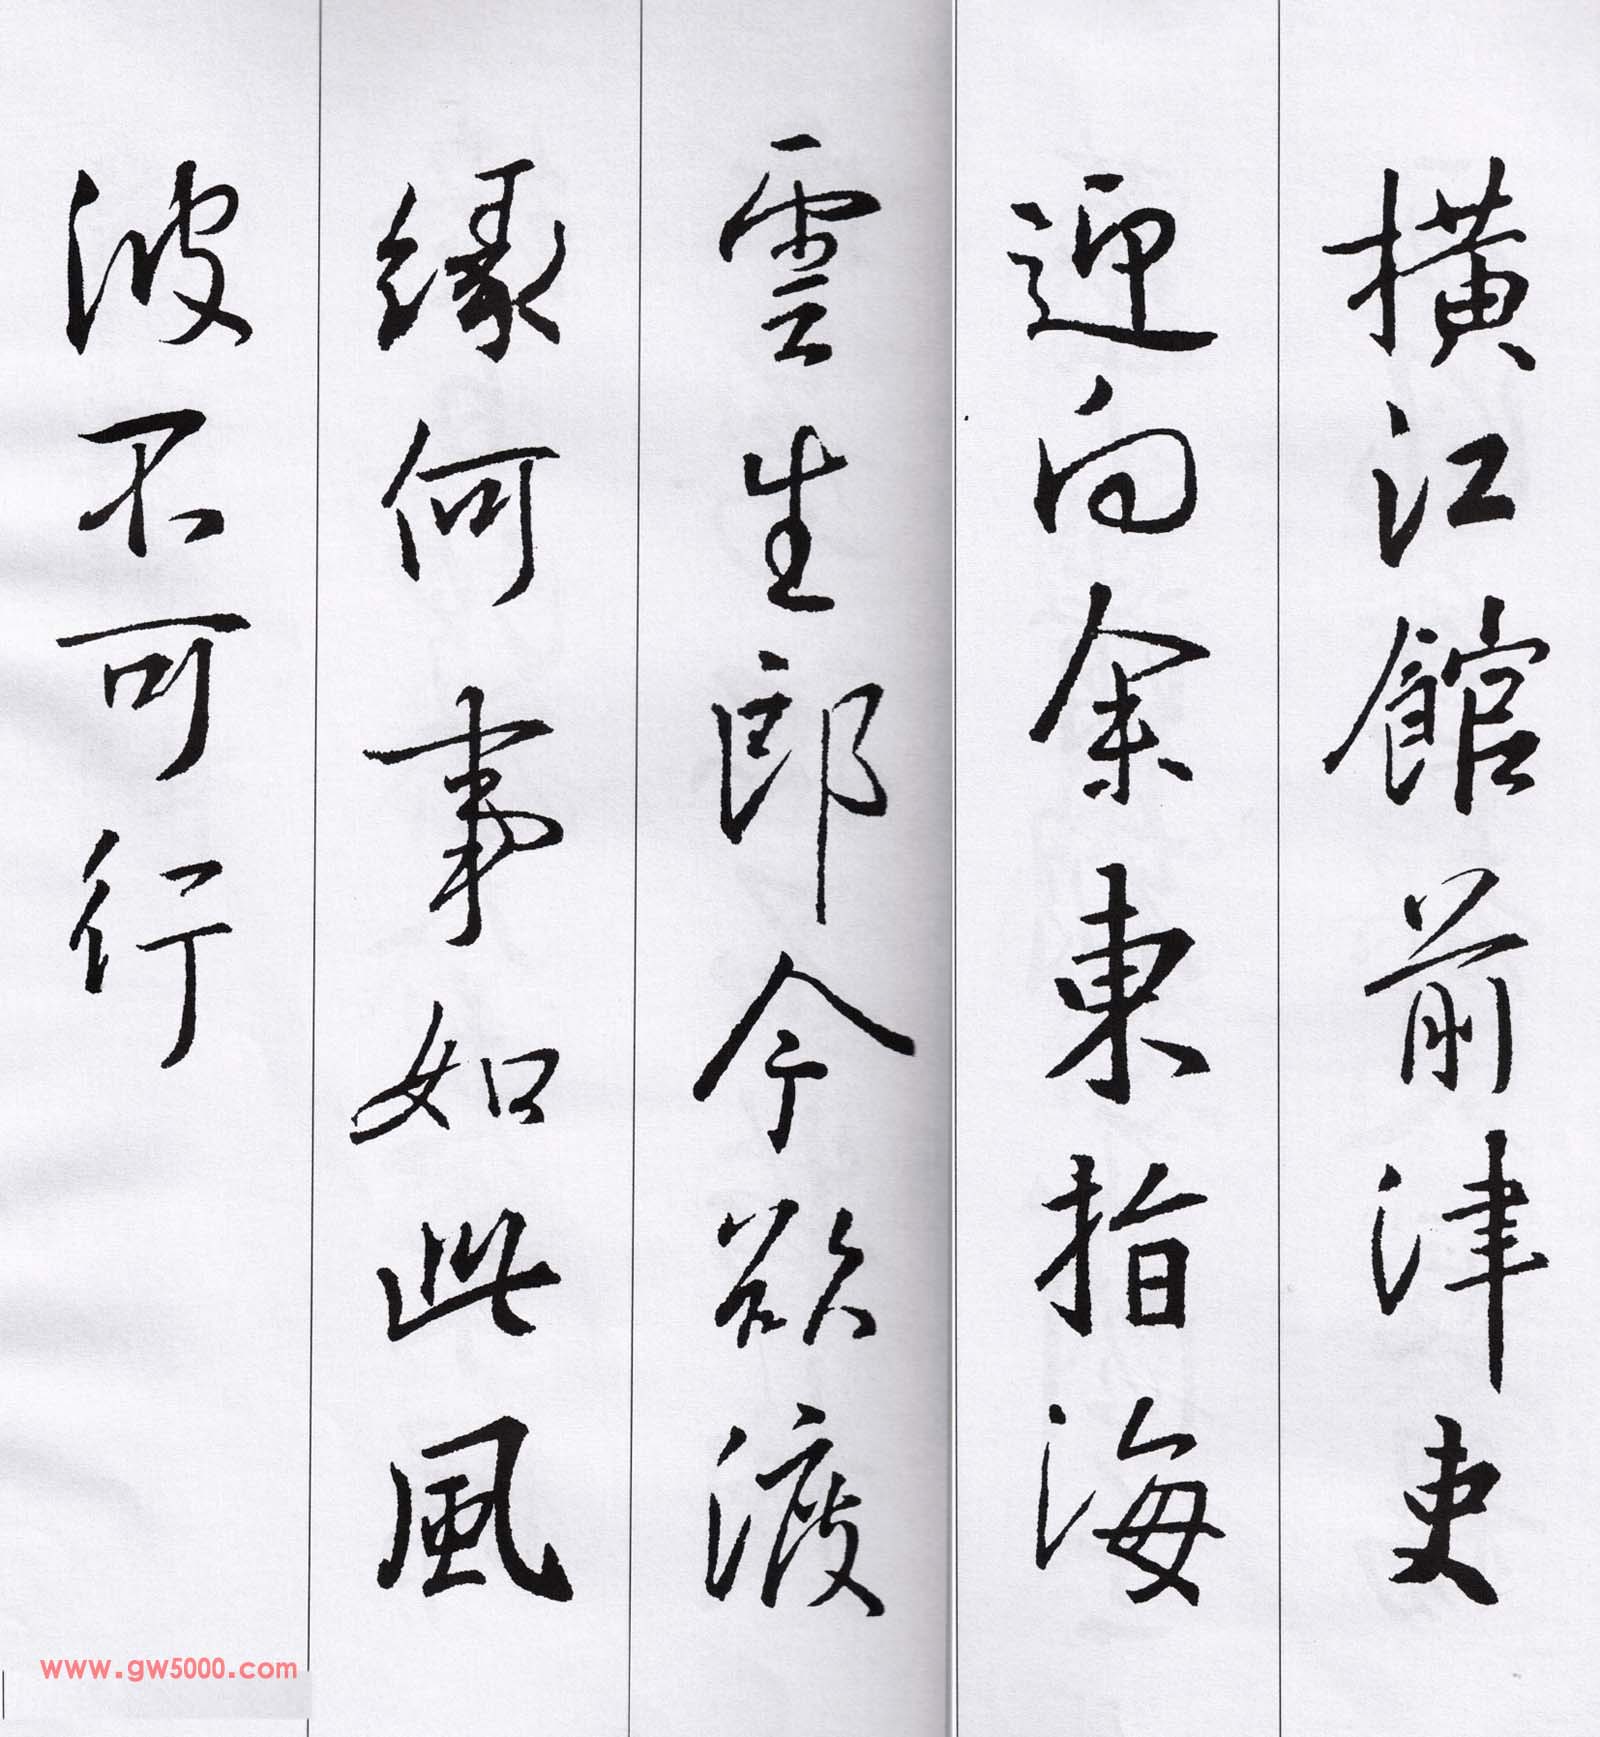 橫江館前津吏
迎向余東指海
雲生郎今欲渡
緣何事如此風
波不可行
www.gw5000.com